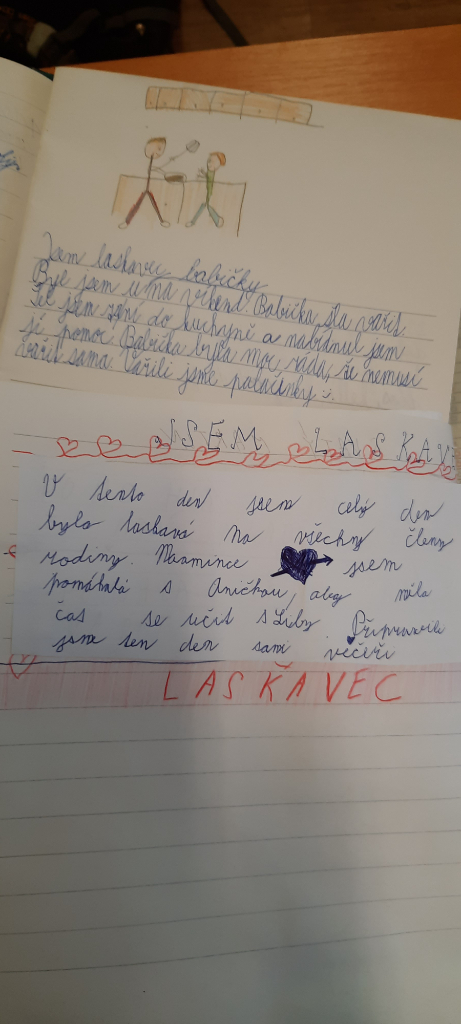 Jsem laskavec babičky
Byl jsem u na víkend. Babička šla vařit
Šel jsem za ní do kuchyně a nabídnul jsem
jí pomoc. Babička byla moc ráda, že nemusí
vařit sama. Vařili jsme palačinky :-).
JSEM LASKAV
V tento den jsem celý den
byla laskavá na všechny členy
rodiny. Maamince jsem
pomáhala s Aničkou, aby měla
čas se učit s Liby. Připravili
jsme ten den sami večeři
LASKAVEC